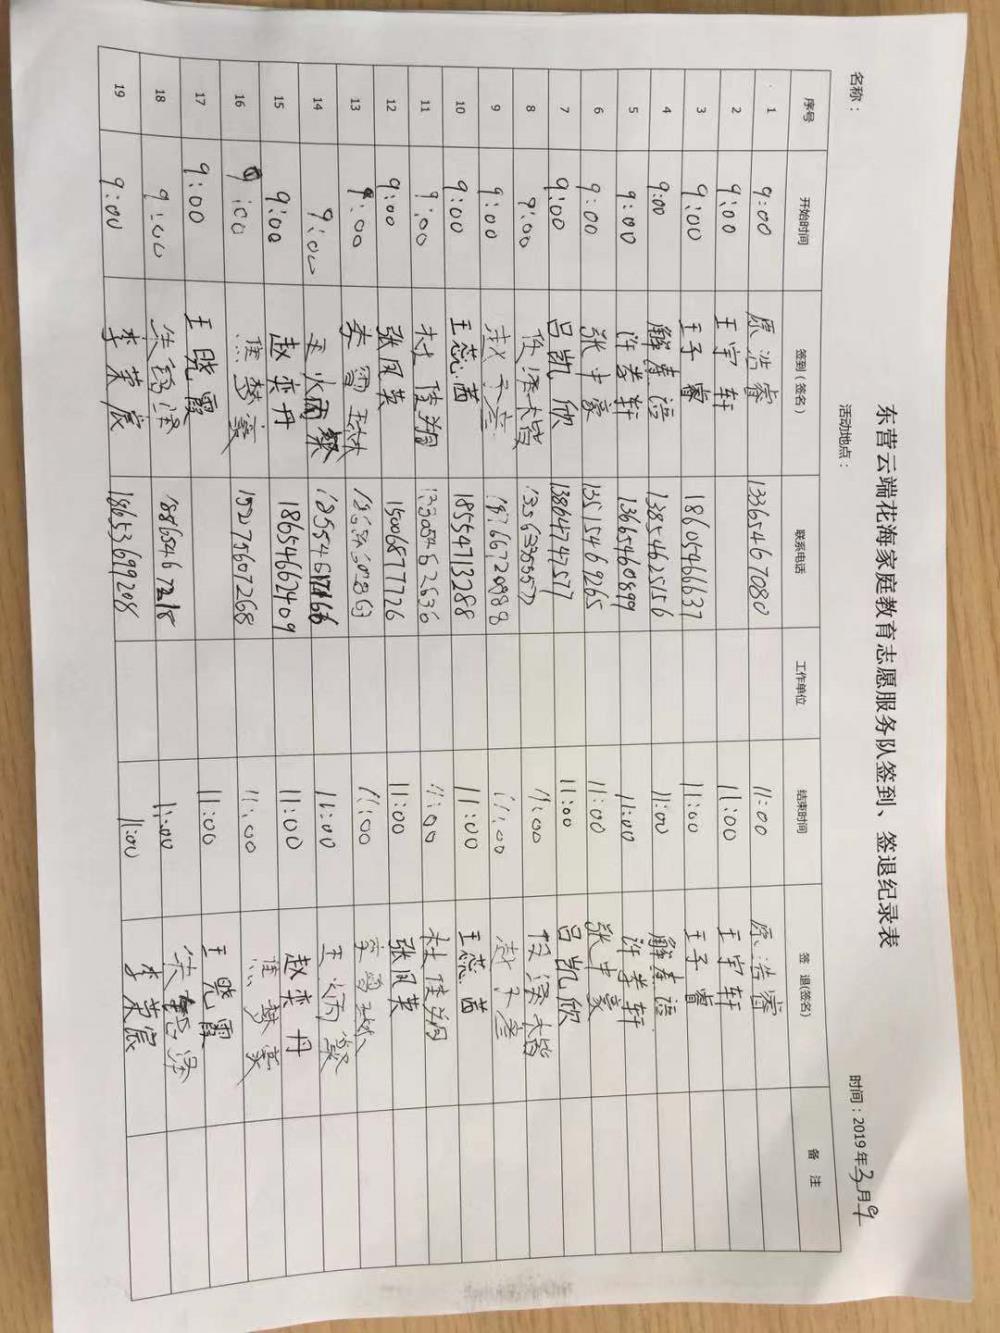 东营云端花海家庭教育志愿服务队签到、签退纪录表
名称： 活动地点： 时间：2019年3月9
序号 开始时间 签到（签名） 联系电话 工作单位 结束时间 签 退(签名) 备 注
1 9:00 原浩睿 13365467080 11:00 原浩睿
2 9:00 王宇轩 11:00 王宇轩
3 9:00 王子睿 18605466637 11:00 王子睿
4 9:00 解春语 13854625156 11:00 解春语
5 9:00 许孝轩 13665460899 11:00 许孝轩
6 9:00 张中豪 13515469265 11:00 张中豪
7 9:00 吕凯欣 13864747577 11:00 吕凯欣
8 9:00 11:00
9 9:00 11:00
10 9:00 王蕊茜 18554713288 11:00 王蕊茜
11 9:00 杜俊翔 11:00 杜俊翔
12 9:00 张凤英 15006877726 11:00 张凤英
13 9:00 11:00
14 9:00 11:00
15 9:00 赵奕丹 18654662409 11:00 赵奕丹
16 9:00 15275607268 11:00
17 9:00 王晓霞 11:00 王晓霞
18 9:00 11:00
19 9:00 李荣宸 18653699208 11:00 李荣宸